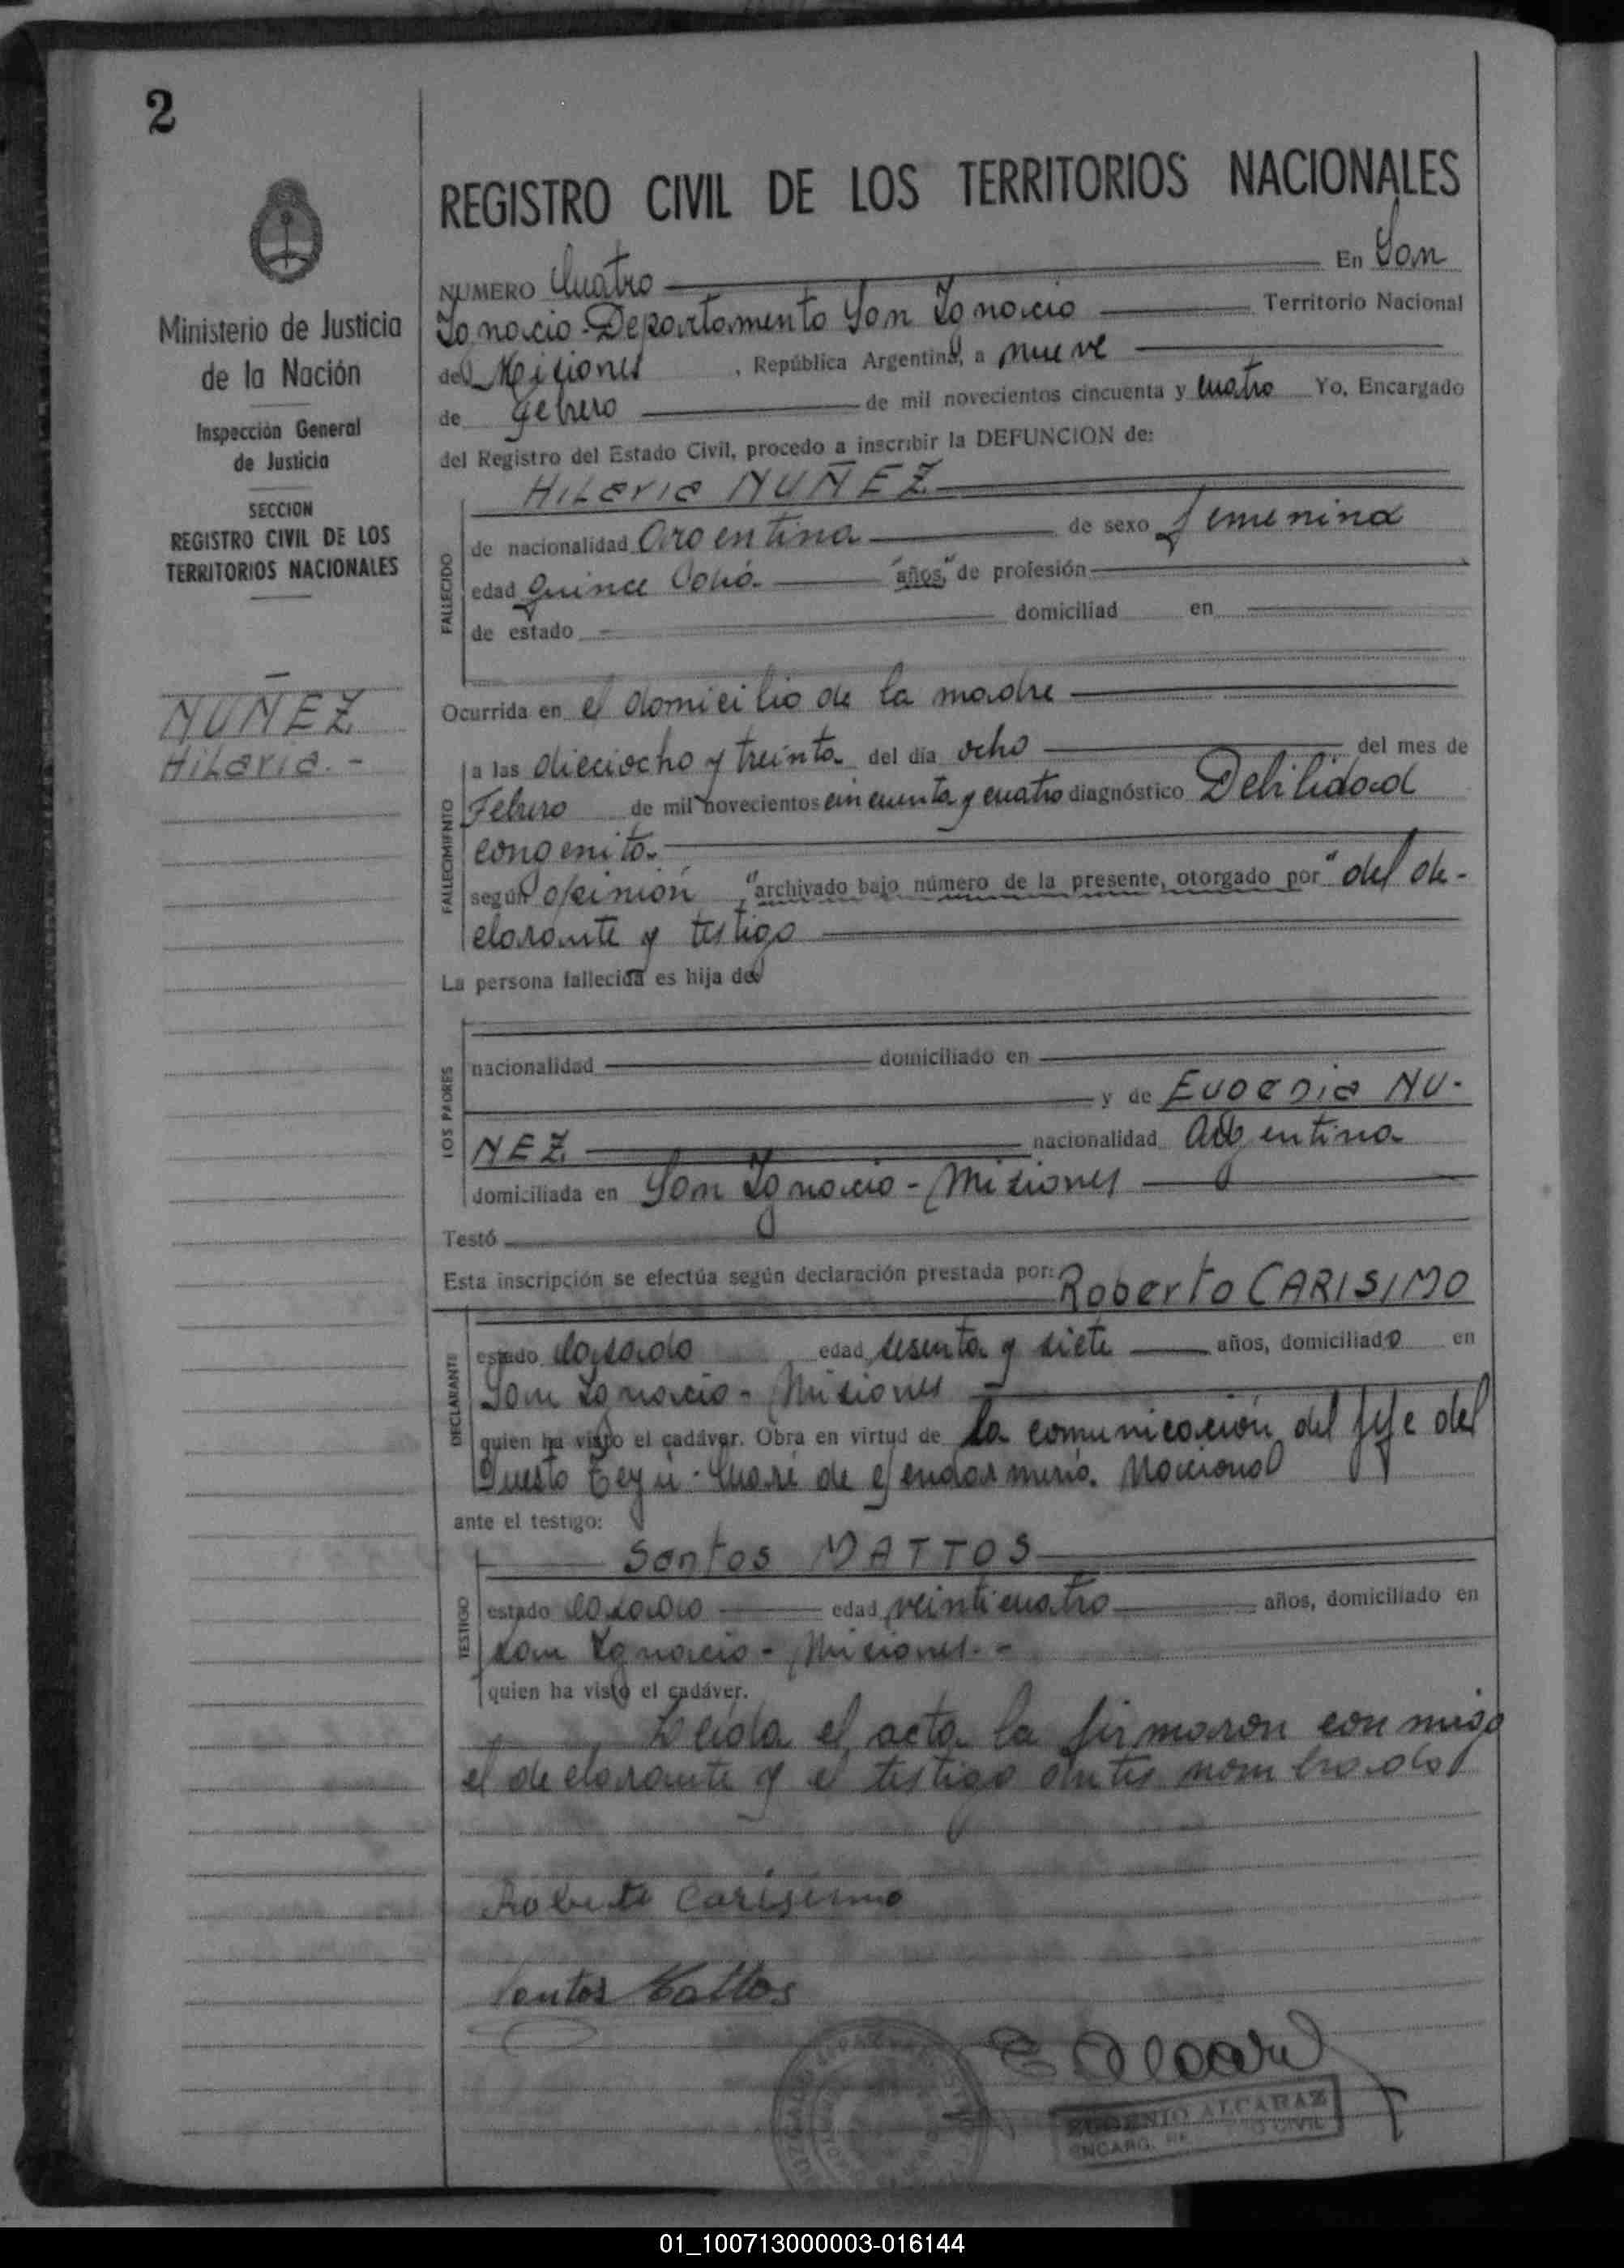 2
Ministerio de Justicia
de la Nación
Inspección General
de Justicia
SECCION
REGISTRO CIVIL DE LOS
TERRITORIOS NACIONALES
NUÑEZ
Hilaria.-
REGISTRO CIVIL DE LOS TERRITORIOS NACIONALES
NUMERO Cuatro En San
Ignacio-Departamento San Ignacio Territorio Nacional
de Misiones, República Argentina, a nueve
de febrero de mil novecientos cincuenta y cuatro Yo, Encargado
del Registro del Estado Civil, procedo a inscribir la DEFUNCION de:
Hilaria NUÑEZ
FALLECIDO
de nacionalidad Argentina de sexo femenina
edad quince "años," de profesión
de estado domiciliad en
Ocurrida en el domicilio de la madre
FALLECIMIENTO
a las dieciocho y treinta del día ocho del mes de
Febrero de mil novecientos cincuenta y cuatro diagnóstico Debilidad
congenita
según opinión "archivado bajo número de la presente, otorgado por" del de-
clarante y testigo
La persona fallecida es hija de
LOS PADRES
nacionalidad domiciliado en
y de Eugenia NU-
NEZ nacionalidad Argentina
domiciliada en San Ignacio - Misiones
Testó
Esta inscripción se efectúa según declaración prestada por: Roberto CARISIMO
DECLARANTE
estado casado edad sesenta y siete años, domiciliado en
San Ignacio - Misiones
quien ha visto el cadáver. Obra en virtud de la comunicación del jefe del
Puesto Teyú-Cuaré de gendarmeria Nacional
ante el testigo:
Santos MATTOS
TESTIGO
estado casado edad veinticuatro años, domiciliado en
San Ignacio - Misiones.-
quien ha visto el cadáver.
Leida el acta la firmaron conmigo
el declarante y el testigo antes nombrado
Roberto Carisimo
Santos Mattos
EUGENIO ALCARAZ
ENCARG. CIVIL
01_100713000003-016144